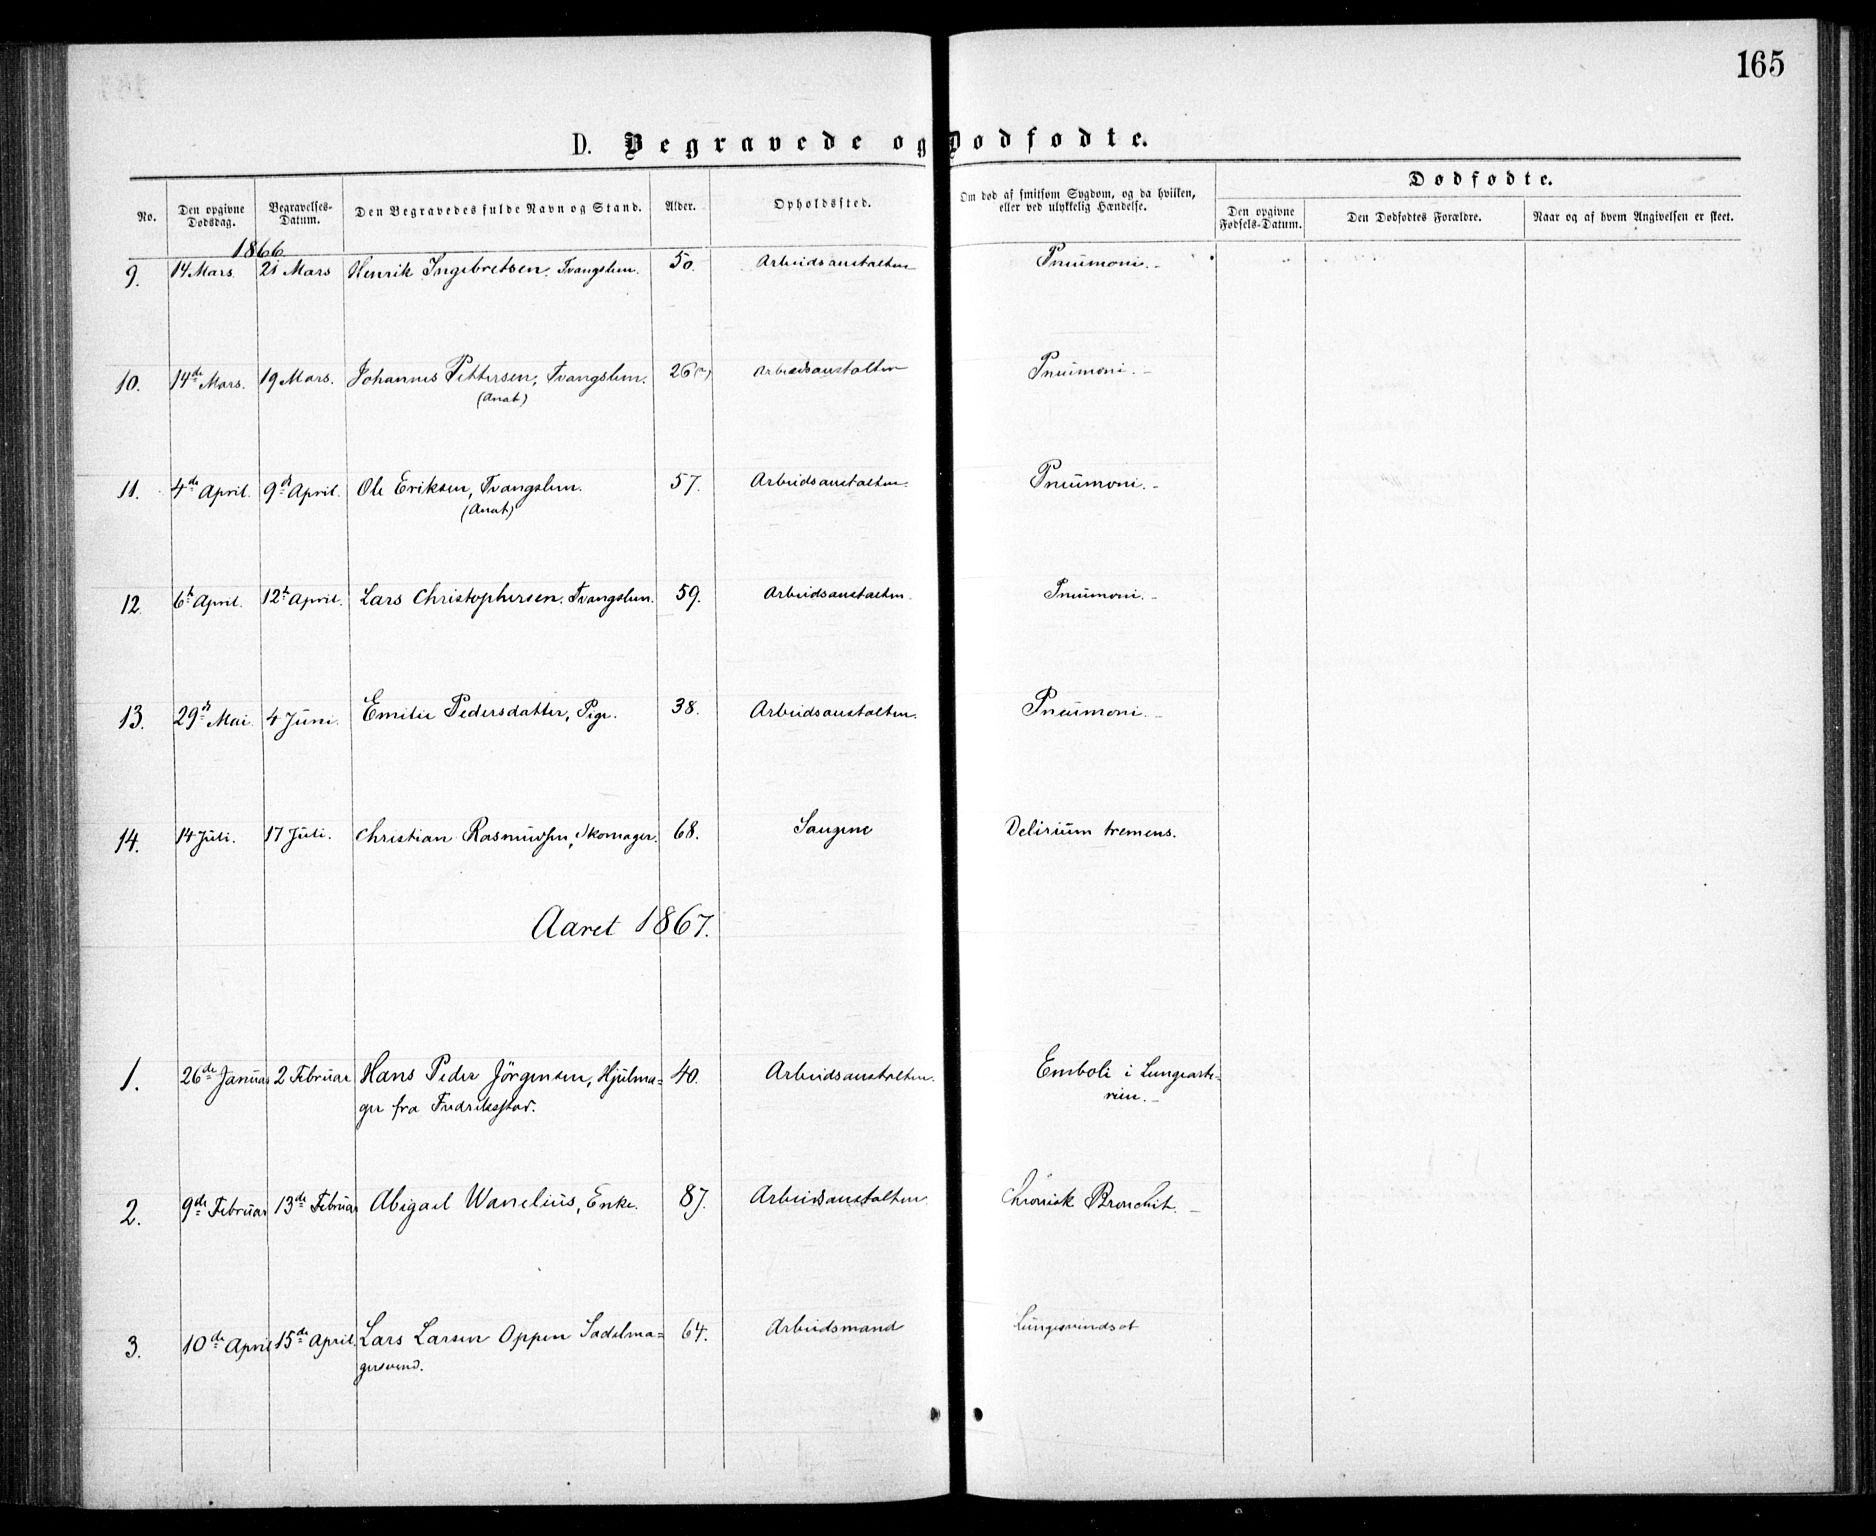 165
D. Begravede og Dødfødte.
No. Den opgivne Dødsdag. Begravelses-Datum. Den Begravedes fulde Navn og Stand. Alder. Opholdssted. Om død af smitsom Sygdom, og da hvilken, eller ved ulykkelig Hændelse. Dødfødte.
Den opgivne Fødsels-Datum. Den Dødfødtes Forældre. Naar og af hvem Angivelsen er skeet.
1866
9. 14 Mars. 21 Mars Henrik Ingebretsen. Tvangslem. 50. Arbeidsanstalten Pneumoni.-
10. 14de Mars. 19 Mars. Johannes Pettersen, Tvangslem. 26 Arbeidsanstalten Pneumoni.-
(Anat)
11. 4de April. 9de April. Ole Eriksen, Tvangslem. 57. Arbeidsanstalten. Pneumoni.-
(Anat)
12. 6t April. 12t April. Lars Christophersen. Tvangslem. 59. Arbeidsanstalten. Pneumoni.-
13. 29de Mai. 4 Juni. Emilie Pedersdatter, Pige. 38. Arbeidsanstalten. Pneumoni.-
14. 14 Juli. 17 Juli. Christian Rasmussen, Skomager. 68. Saugene Delirium tremens.
Aaret 1867.
1. 26de Januar 2 Februar Hans Peder Jörgensen, Hjulma- 40. Arbeidsanstalten. Emboli i Lungearte-
ger fra Fredriksstad. rien.-
2. 9de Februar 13de Februar Abigael Wanelius, Enke. 87. Arbeidsanstalten. Chronisk Bronchit.-
3. 10de April 15de April. Lars Larsen Oppen Sadelma- 64. Arbeidsmand Lungesvindsot
gersvend.